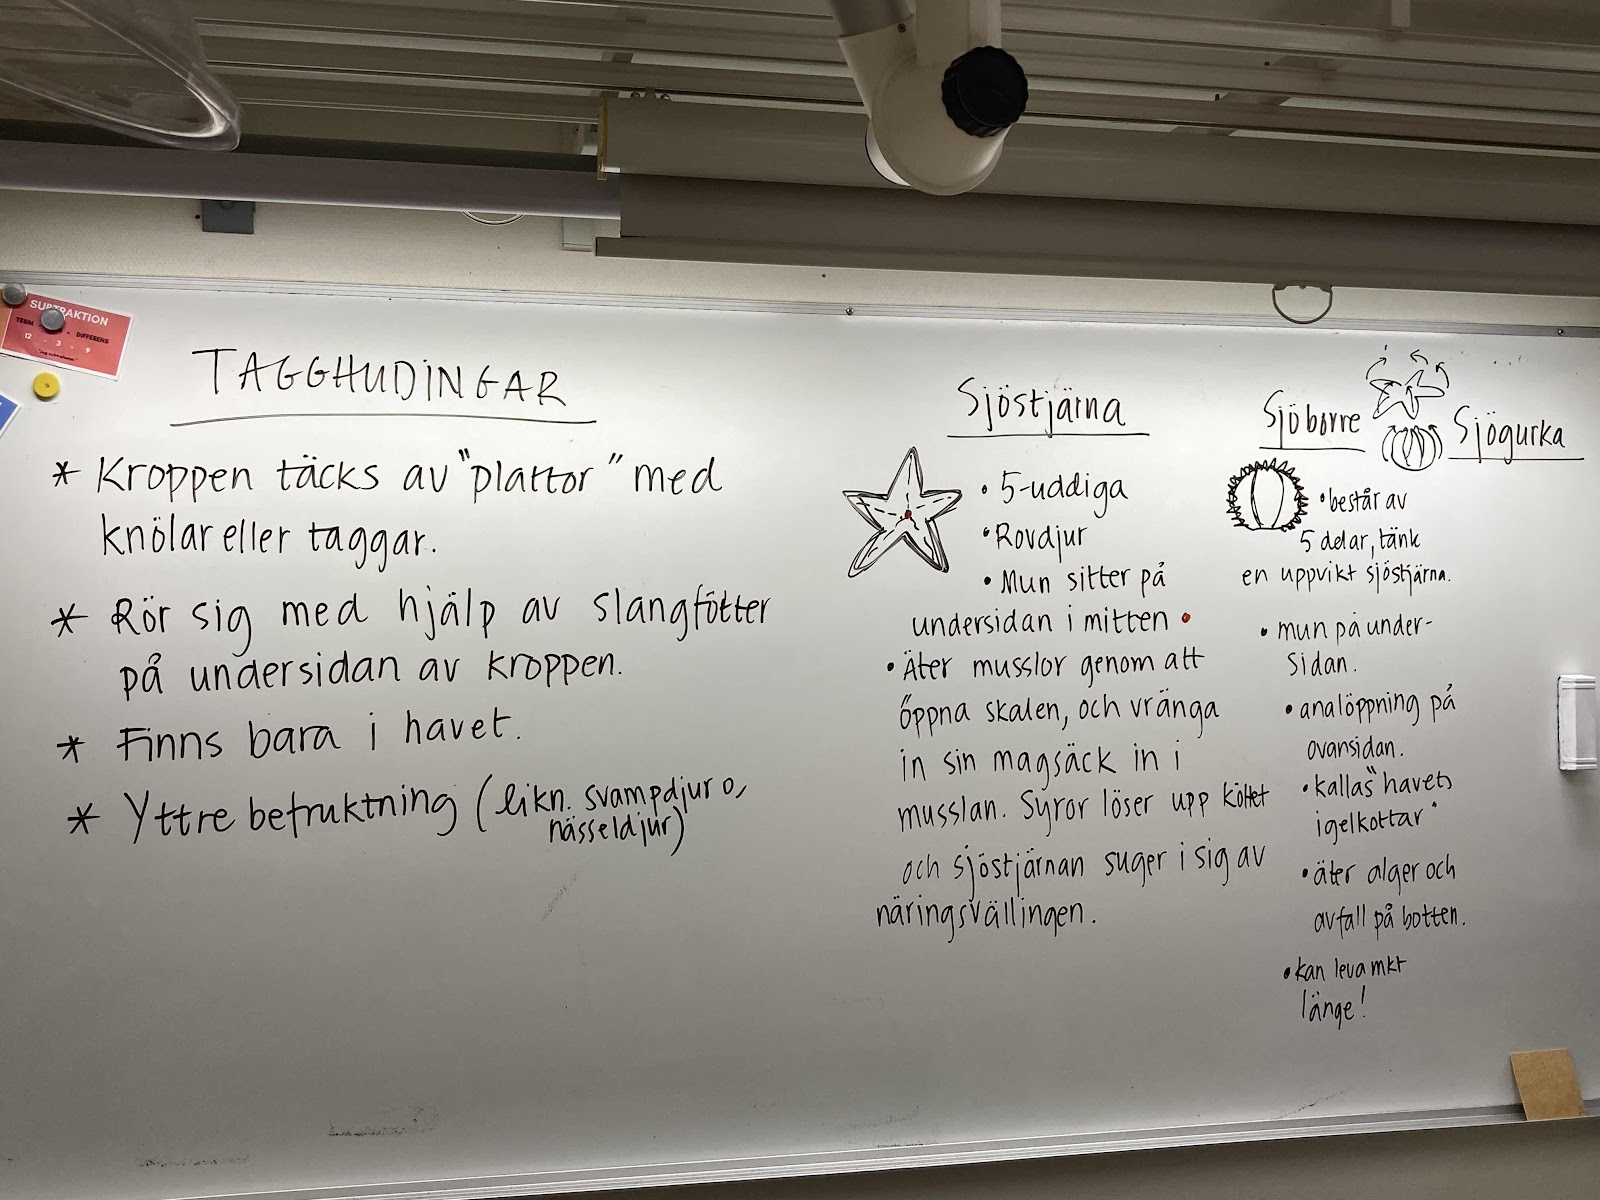 SUBTRAKTION
TERM DIFFERENS
12 - 3 = 9
TAGGHUDINGAR
* Kroppen täcks av "plattor" med
knölar eller taggar.
* Rör sig med hjälp av slangfötter
på undersidan av kroppen.
* Finns bara i havet.
* Yttre befruktning (likn. svampdjur o,
nässeldjur)
Sjöstjärna
• 5-uddiga
• Rovdjur
• Mun sitter på
undersidan i mitten •
• Äter musslor genom att
öppna skalen, och vränga
in sin magsäck in i
musslan. Syror löser upp köttet
och sjöstjärnan suger i sig av
näringsvällingen.
Sjöborre
• består av
5 delar, tänk
en uppvikt sjöstjärna.
• mun på under-
sidan.
• analöppning på
ovansidan.
• kallas "havets
igelkottar"
• äter alger och
avfall på botten.
• kan leva mkt
länge!
Sjögurka